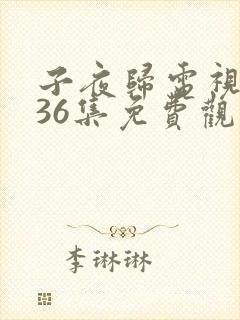 子夜歸電視
36集免費觀
李琳琳